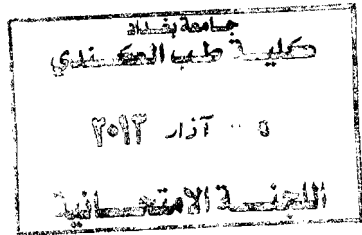 جامعة بغداد
كلية طب الكندي
٥ آذار ٢٠١٣
اللجنة الامتحانية